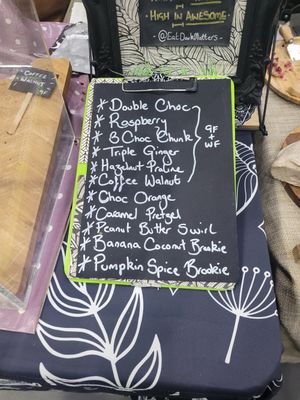 HIGH IN AWESOME
~@EatDarkMatters~
* Double Choc
* Raspberry
* 6 Choc Chunk
* Triple Ginger
* Hazelnut Praline
* Coffee Walnut
GF
+
WF
* Choc Orange
* Caramel Pretzel
* Peanut Butter Swirl
* Banana Coconut Brookie
* Pumpkin Spice Brookie
COFFEE
WALNUT